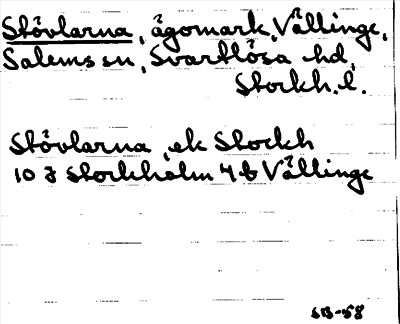 Stövlarna, ägomark, Vällinge,
Salems sn, Svartlösa hd,
Stockh. l.
Stövlarna, ek Stockh
10 J Stockholm 4 b Vällinge
SB-58